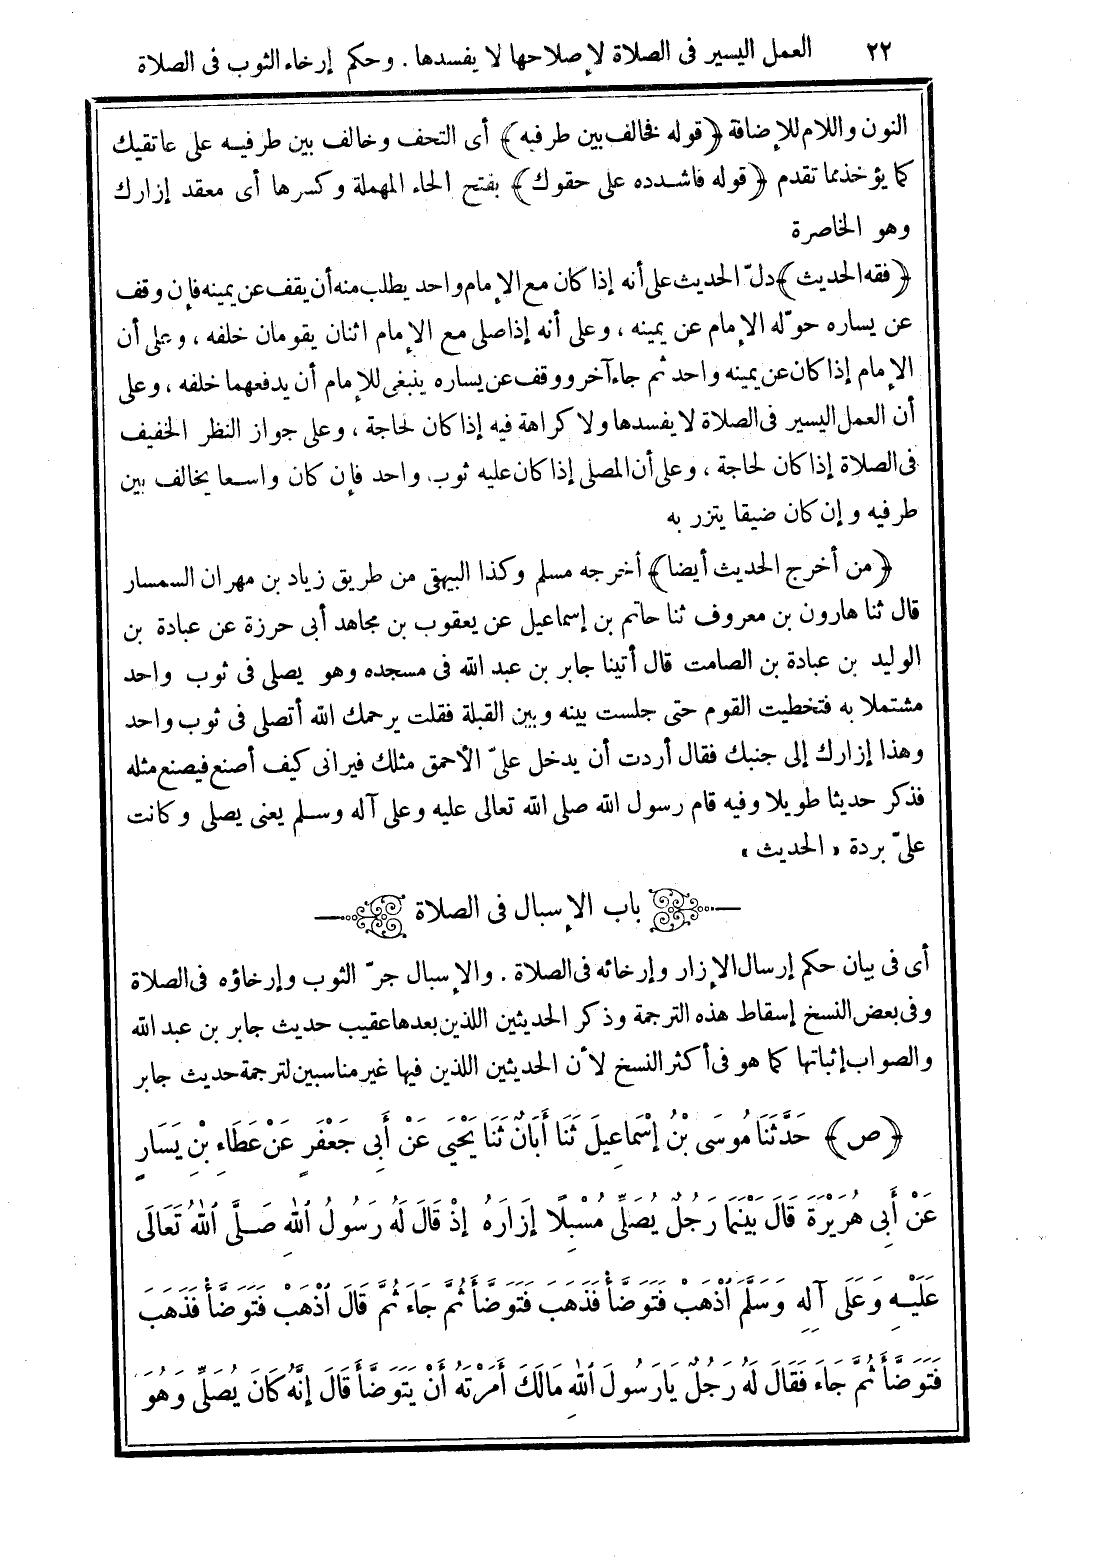 ٢٢ العمل اليسير فى الصلاة لإصلاحها لا يفسدها . وحكم إرخاء الثوب فى الصلاة
النون واللام للإضافة ﴿قوله فخالف بين طرفيه﴾ أى التحف وخالف بين طرفيه على عاتقيك
كما يؤخذ مما تقدم ﴿قوله فاشدده على حقوك﴾ بفتح الحاء المهملة وكسرها أى معقد إزارك
وهو الخاصرة
﴿فقه الحديث﴾ دلّ الحديث على أنه إذا كان مع الإمام واحد يطلب منه أن يقف عن يمينه فإن وقف
عن يساره حوّله الإمام عن يمينه ، وعلى أنه إذا صلى مع الإمام اثنان يقومان خلفه ، وعلى أن
الإمام إذا كان عن يمينه واحد ثم جاء آخر ووقف عن يساره ينبغى للإمام أن يدفعهما خلفه ، وعلى
أن العمل اليسير فى الصلاة لا يفسدها ولا كراهة فيه إذا كان لحاجة ، وعلى جواز النظر الخفيف
فى الصلاة إذا كان لحاجة ، وعلى أن المصلى إذا كان عليه ثوب واحد فإن كان واسعا يخالف بين
طرفيه وإن كان ضيقا يتزر به
﴿من أخرج الحديث أيضا﴾ أخرجه مسلم وكذا البيهقى من طريق زياد بن مهران السمسار
قال ثنا هارون بن معروف ثنا حاتم بن إسماعيل عن يعقوب بن مجاهد أبى حرزة عن عبادة بن
الوليد بن عبادة بن الصامت قال أتينا جابر بن عبد الله فى مسجده وهو يصلى فى ثوب واحد
مشتملا به فتخطيت القوم حتى جلست بينه وبين القبلة فقلت يرحمك الله أتصلى فى ثوب واحد
وهذا إزارك إلى جنبك فقال أردت أن يدخل علىّ الأحمق مثلك فيرانى كيف أصنع فيصنع مثله
فذكر حديثا طويلا وفيه قام رسول الله صلى الله تعالى عليه وعلى آله وسلم يعنى يصلى وكانت
علىّ بردة « الحديث »
باب الإسبال فى الصلاة
أى فى بيان حكم إرسال الإزار وإرخائه فى الصلاة . والإسبال جرّ الثوب وإرخاؤه فى الصلاة
وفى بعض النسخ إسقاط هذه الترجمة وذكر الحديثين اللذين بعدها عقيب حديث جابر بن عبد الله
والصواب إثباتها كما هو فى أكثر النسخ لأن الحديثين اللذين فيها غير مناسبين لترجمة حديث جابر
﴿ص﴾ حَدَّثَنَا مُوسَى بْنُ إِسْمَاعِيلَ ثَنَا أَبَانٌ ثَنَا يَحْيَى عَنْ أَبِى جَعْفَرٍ عَنْ عَطَاءِ بْنِ يَسَارٍ
عَنْ أَبِى هُرَيْرَةَ قَالَ بَيْنَمَا رَجُلٌ يُصَلِّى مُسْبِلًا إِزَارَهُ إِذْ قَالَ لَهُ رَسُولُ اللهِ صَلَّى اللهُ تَعَالَى
عَلَيْهِ وَعَلَى آلِهِ وَسَلَّمَ اذْهَبْ فَتَوَضَّأْ فَذَهَبَ فَتَوَضَّأَ ثُمَّ جَاءَ ثُمَّ قَالَ اذْهَبْ فَتَوَضَّأْ فَذَهَبَ
فَتَوَضَّأَ ثُمَّ جَاءَ فَقَالَ لَهُ رَجُلٌ يَارَسُولَ اللهِ مَالَكَ أَمَرْتَهُ أَنْ يَتَوَضَّأَ قَالَ إِنَّهُ كَانَ يُصَلِّى وَهُوَ